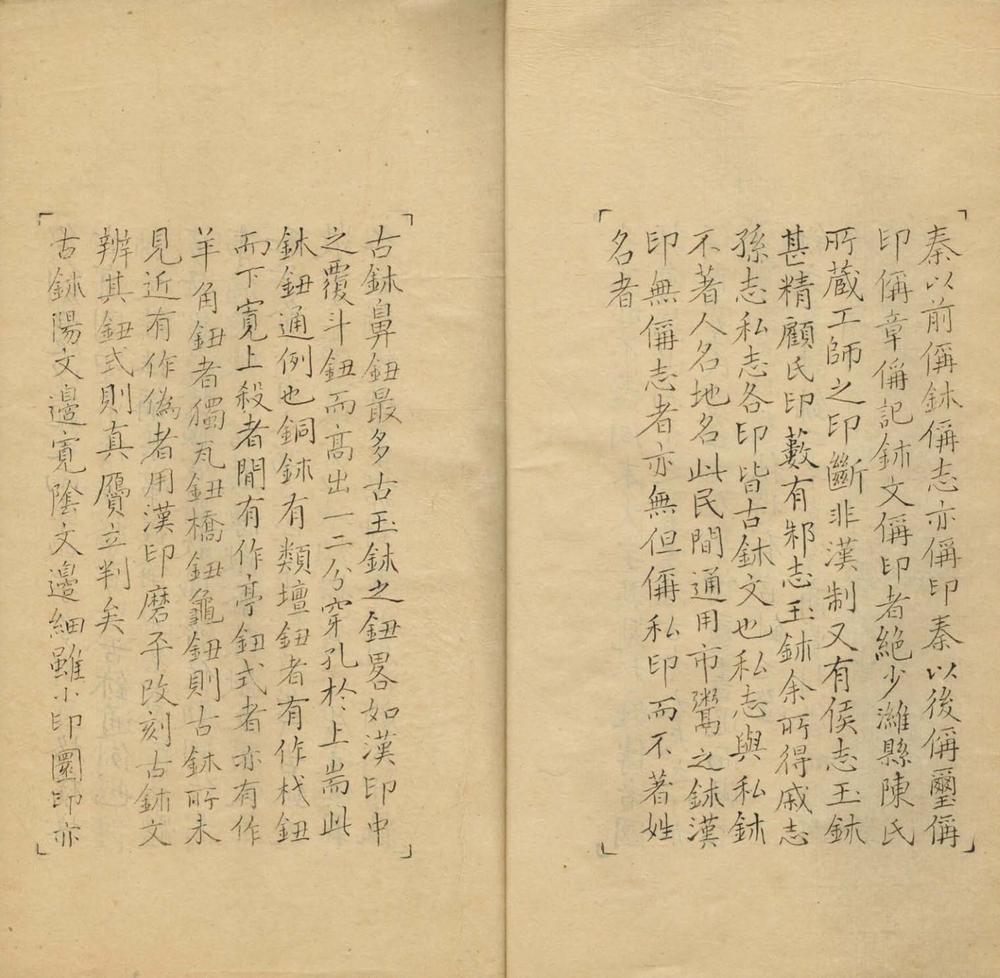 秦以前偁鉨偁志亦偁印秦以後偁璽偁
印偁章偁記鉨文偁印者絕少濰縣陳氏
所蔵工師之印斷非漢制又有侯志玉鉨
甚精顧氏印藪有邾志玉鉨余所得戚志
孫志私志各印皆古鉨文也私志與私鉨
不著人名地名此民間通用市鬻之鉨漢
印無偁志者亦無但偁私印而不著姓
名者
古鉨鼻鈕最多古玉鉨之鈕畧如漢印中
之覆斗鈕而高出一二分穿孔於上耑此
鉨鈕通例也銅鉨有類壇鈕者有作杙鈕
而下寬上殺者閒有作亭鈕式者亦有作
羊角鈕者獨瓦鈕橋鈕龜鈕則古鉨所未
見近有作偽者用漢印磨平改刻古鉨文
辨其鈕式則真贗立判矣
古鉨陽文邊寬陰文邊細雖小印圜印亦